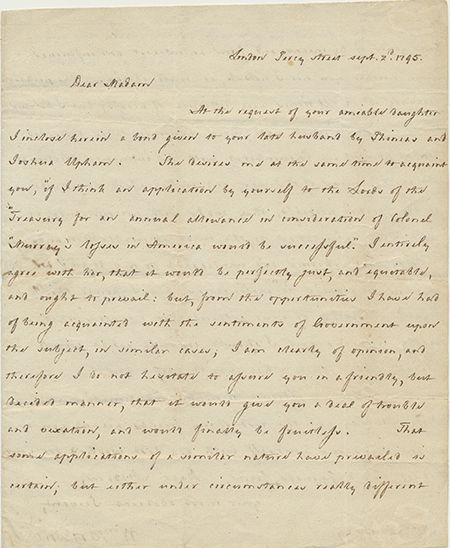 London Percy Street Sept. 2d. 1795.
Dear Madam
At the request of your amiable daughter
I inclose herein a bond given to your late husband by Phineas and
Joshua Upham. She desires me at the same time to acquaint
you, "if I think an application by yourself to the Lords of the
"Treasury for an annual allowance in consideration of Colonel
"Murray's losses in America would be successful". I entirely
agree with her, that it would be perfectly just, and equitable,
and ought to prevail: but, from the opportunities I have had
of being acquainted with the sentiments of Government upon
the subject, in similar cases, I am clearly of opinion, and
therefore I do not hesitate to assure you in a friendly, but
decided manner, that it would give you a deal of trouble
and vexation, and would finally be fruitless. That
some applications of a similar nature have prevailed is
certain; but either under circumstances really different